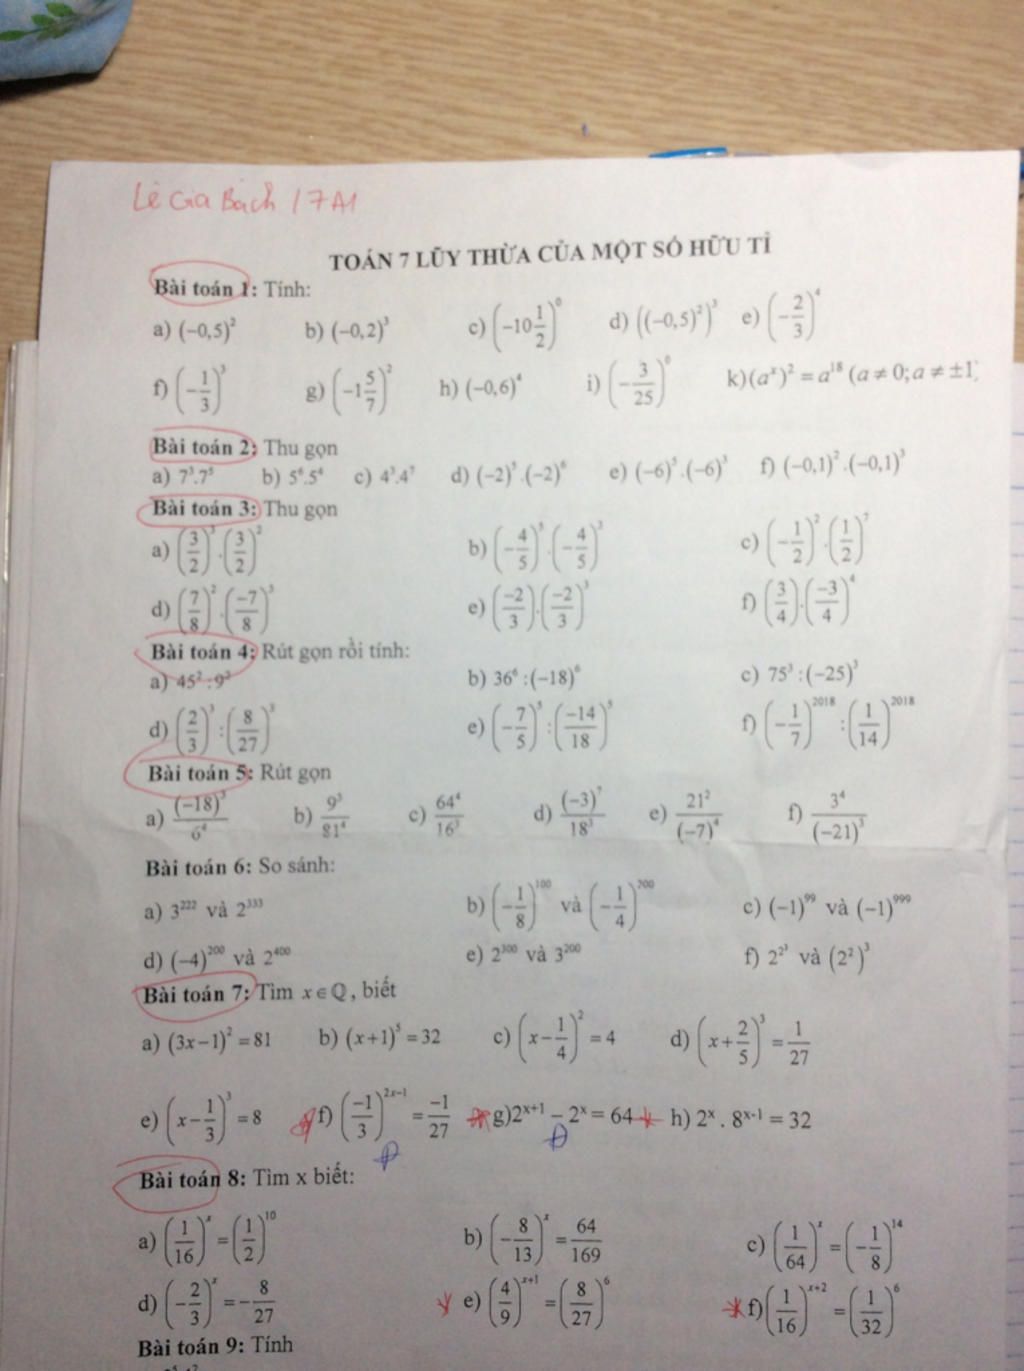 Lê Gia Bách / 7A1
TOÁN 7 LŨY THỪA CỦA MỘT SỐ HỮU TỈ
Bài toán 1: Tính:
a) (−0,5)² b) (−0,2)³ c) (−10 1/2)⁰ d) ((−0,5)²)³ e) (−2/3)⁴
f) (−1/3)³ g) (−1 5/7)² h) (−0,6)⁴ i) (−3/25)⁰ k)(aˣ)² = a¹⁸ (a ≠ 0; a ≠ ±1)
Bài toán 2: Thu gọn
a) 7³.7⁵ b) 5⁶.5⁴ c) 4³.4⁷ d) (−2)⁵.(−2)⁶ e) (−6)⁵.(−6)³ f) (−0,1)².(−0,1)³
Bài toán 3: Thu gọn
a) (3/2)³.(3/2)² b) (−4/5)⁵.(−4/5)³ c) (−1/2)².(1/2)⁷
d) (7/8)².(−7/8)³ e) (−2/3).(−2/3)³ f) (3/4).(−3/4)⁴
Bài toán 4: Rút gọn rồi tính:
a) 45² : 9² b) 36⁶ : (−18)⁶ c) 75³ : (−25)³
d) (2/3)³ : (8/27)³ e) (−7/5)⁵ : (−14/18)⁵ f) (−1/7)²⁰¹⁸ : (1/14)²⁰¹⁸
Bài toán 5: Rút gọn
a) (−18)³/6⁴ b) 9³/81⁴ c) 64⁴/16³ d) (−3)⁷/18³ e) 21²/(−7)⁴ f) 3⁴/(−21)³
Bài toán 6: So sánh:
a) 3²²² và 2³³³ b) (−1/8)¹⁰⁰ và (−1/4)²⁰⁰ c) (−1)⁹⁹ và (−1)⁹⁹⁹
d) (−4)²⁰⁰ và 2⁴⁰⁰ e) 2³⁰⁰ và 3²⁰⁰ f) 2^2³ và (2²)³
Bài toán 7: Tìm x∈Q, biết
a) (3x−1)² = 81 b) (x+1)⁵ = 32 c) (x−1/4)² = 4 d) (x+2/5)³ = 1/27
e) (x−1/3)³ = 8 f) (−1/3)²ˣ⁻¹ = −1/27 g)2ˣ⁺¹ − 2ˣ = 64 h) 2ˣ . 8ˣ⁻¹ = 32
Bài toán 8: Tìm x biết:
a) (1/16)ˣ = (1/2)¹⁰ b) (−8/13)ˣ = 64/169 c) (1/64)ˣ = (−1/8)¹⁴
d) (−2/3)ˣ = −8/27 e) (4/9)ˣ⁺¹ = (8/27)⁶ f)(1/16)ˣ⁺² = (1/32)⁶
Bài toán 9: Tính